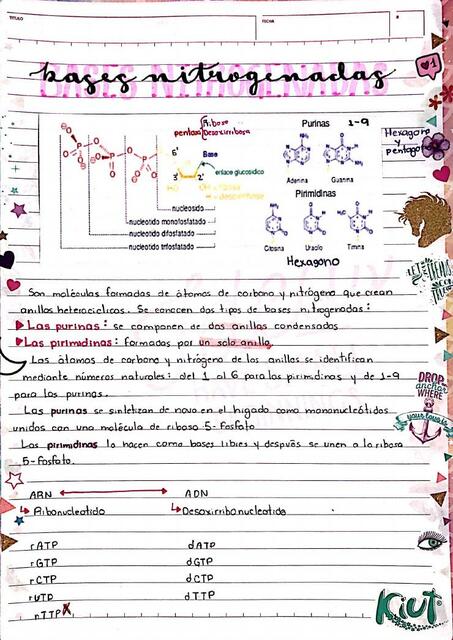 TITULO
FECHA
#
bases nitrogenadas
BASES NITROGENADAS
1
pentosa Ribosa
Desoxirribosa
Base
enlace glucosídico
5'
3' 2'
HO
nucleósido
nucleótido monofosfatado
nucleótido difosfatado
nucleótido trifosfatado
Purinas 1-9
Hexagono
y
pentagono
Adenina Guanina
Pirimidinas
Citosina Uracilo Timina
Hexagono
Son moléculas formadas de átomos de carbono y nitrógeno que crean
anillos heterocíclicos. Se conocen dos tipos de bases nitrogenadas:
Las purinas: se componen de dos anillos condensados
Las pirimidinas: formadas por un solo anillo
Los átomos de carbono y nitrógeno de los anillos se identifican
mediante números naturales: del 1 al 6 para las pirimidinas y de 1-9
para las purinas.
Las purinas se sintetizan de novo en el higado como mononucleótidos
unidos con una molécula de ribosa 5-fosfato
Las pirimidinas lo hacen como bases libres y después se unen a la ribosa
5-fosfato.
ARN ADN
Ribonucleotido Desoxirribonucleotido
rATP dATP
rGTP dGTP
rCTP dCTP
rUTP dTTP
nTTP X
DROP
anchor
WHERE
your love is
Kiut